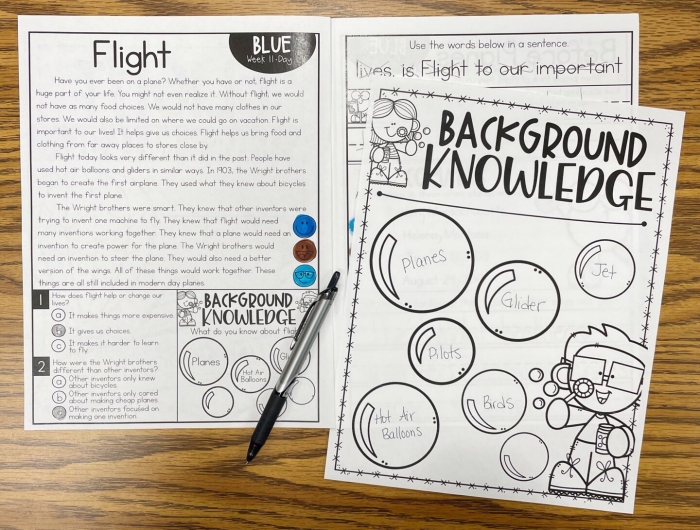 Flight
BLUE
Week 11-Day
Have you ever been on a plane? Whether you have or not, flight is a
huge part of your life. You might not even realize it. Without flight, we would
not have as many food choices. We would not have many clothes in our
stores. We would also be limited on where we could go on vacation. Flight is
important to our lives! It helps give us choices. Flight helps us bring food and
clothing from far away places to stores close by.
Flight today looks very different than it did in the past. People have
used hot air balloons and gliders in similar ways. In 1903, the Wright brothers
began to create the first airplane. They used what they knew about bicycles
to invent the first plane.
The Wright brothers were smart. They knew that other inventors were
trying to invent one machine to fly. They knew that flight would need
many inventions working together. They knew that a plane would need an
invention to create power for the plane. The Wright brothers would
need an invention to steer the plane. They would also need a better
version of the wings. All of these things would work together. These
things are all still included in modern day planes.
1 How does flight help or change our
lives?
a It makes things more expensive
b It gives us choices
c It makes it harder to learn
to fly
2 How were the Wright brothers
different than other inventors?
a Other inventors only knew
about bicycles.
b Other inventors only cared
about making cheap planes.
c Other inventors focused on
making one invention.
BACKGROUND
KNOWLEDGE
What do you know about flight
Planes
Hot Air
Balloons
Use the words below in a sentence.
lives, is Flight to our important
BACKGROUND
KNOWLEDGE
Planes
Jet
Glider
Pilots
Birds
Hot Air
Balloons